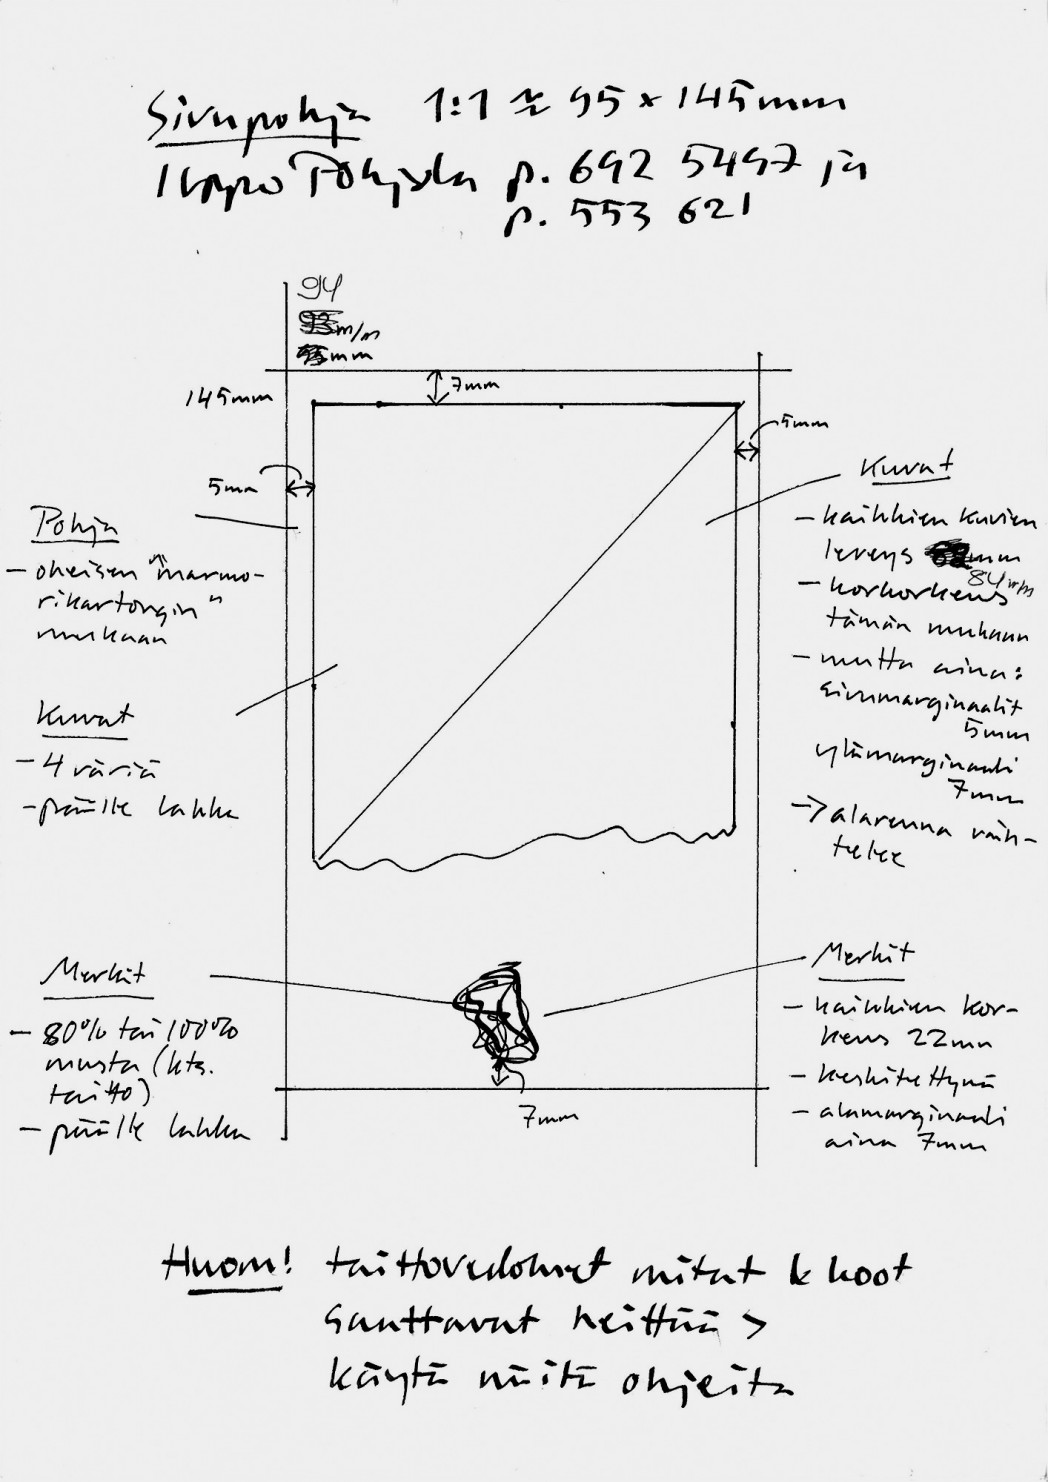 Sivupohja 1:1 ≈ 95 x 145mm
Ilppo Pohjola p. 692 5497 ja
p. 553 621
94
m/m
mm
145mm
7mm
5mm
5mm
Pohja
- oheisen "marmo-
rikartongin"
mukaan
Kuvat
- 4 väriä
- päälle lakka
Kuvat
- kaikkien kuvien
leveys mm
84 m/m
- korkorkeus
tämän mukaan
- mutta aina:
sivumarginaalit
5mm
ylämarginaali
7mm
-> alareuna vaih-
telee
Merkit
- 80% tai 100%
musta (kts.
taitto)
- päälle lakka
Merkit
- kaikkien kor-
keus 22mm
- keskitettynä
- alamarginaali
aina 7mm
7mm
Huom! taittovedokset mitat & koot
saattavat heittää >
käytä näitä ohjeita